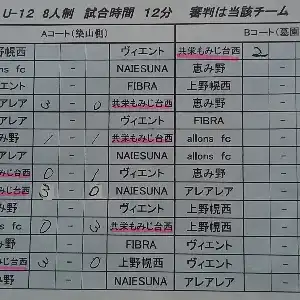 U-12 8人制 試合時間 12分 審判は当該チーム
Aコート(築山側) Bコート(墓園
野幌西 - ヴィエント 共栄もみじ台西 2
ons fc - NAIESUNA 恵み野 -
アレア - FIBRA 上野幌西 -
アレア 3 - 0 共栄もみじ台西 恵み野 -
アレア - ヴィエント FIBRA -
み野 1 - 1 共栄もみじ台西 allons fc -
アレア - NAIESUNA allons fc -
もみじ台西 0 - 1 ヴィエント 恵み野 -
もみじ台西 3 - 0 NAIESUNA アレアレア -
み野 - ヴィエント 上野幌西 -
ns fc 0 - 3 共栄もみじ台西 ヴィエント -
み野 - FIBRA ヴィエント -
みじ台西 3 - 0 上野幌西 アレアレア -
野 - NAIESUNA アレアレア -